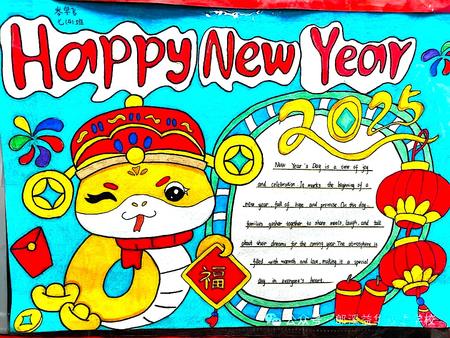 七(1)班
Happy New Year
2025
New Year's Day is a time of joy
and celebration. It marks the beginning of a
new year, full of hope and promise. On this day,
families gather together to share meals, laugh, and talk
about their dreams for the coming year. The atmosphere is
filled with warmth and love, making it a special
day in everyone's heart.
福